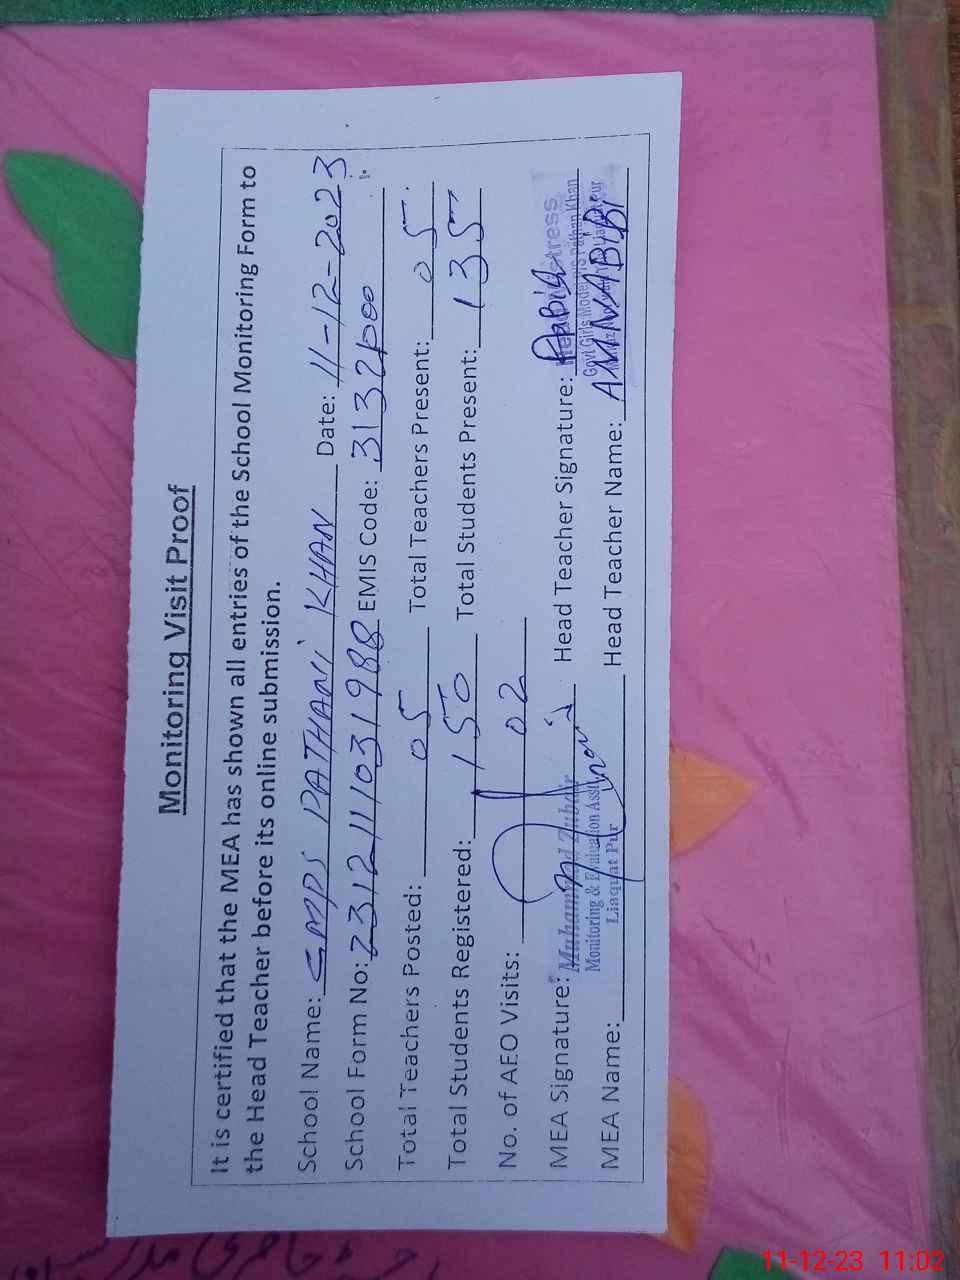 Monitoring Visit Proof
It is certified that the MEA has shown all entries of the School Monitoring Form to
the Head Teacher before its online submission.
School Name: GMPS PATHANI KHAN Date: 11-12-2023
School Form No: 2312111031988 EMIS Code: 31321000
Total Teachers Posted: 05 Total Teachers Present: 05
Total Students Registered: 150 Total Students Present: 135
No. of AEO Visits: 02
MEA Signature: Muhammad Zubair Head Teacher Signature: Headmistress
Monitoring & Evaluation Asstt Govt Girls Model P/S Pathan Khan
Liaquat Pur
MEA Name: Head Teacher Name: AMNA BIBI
11-12-23 11:02